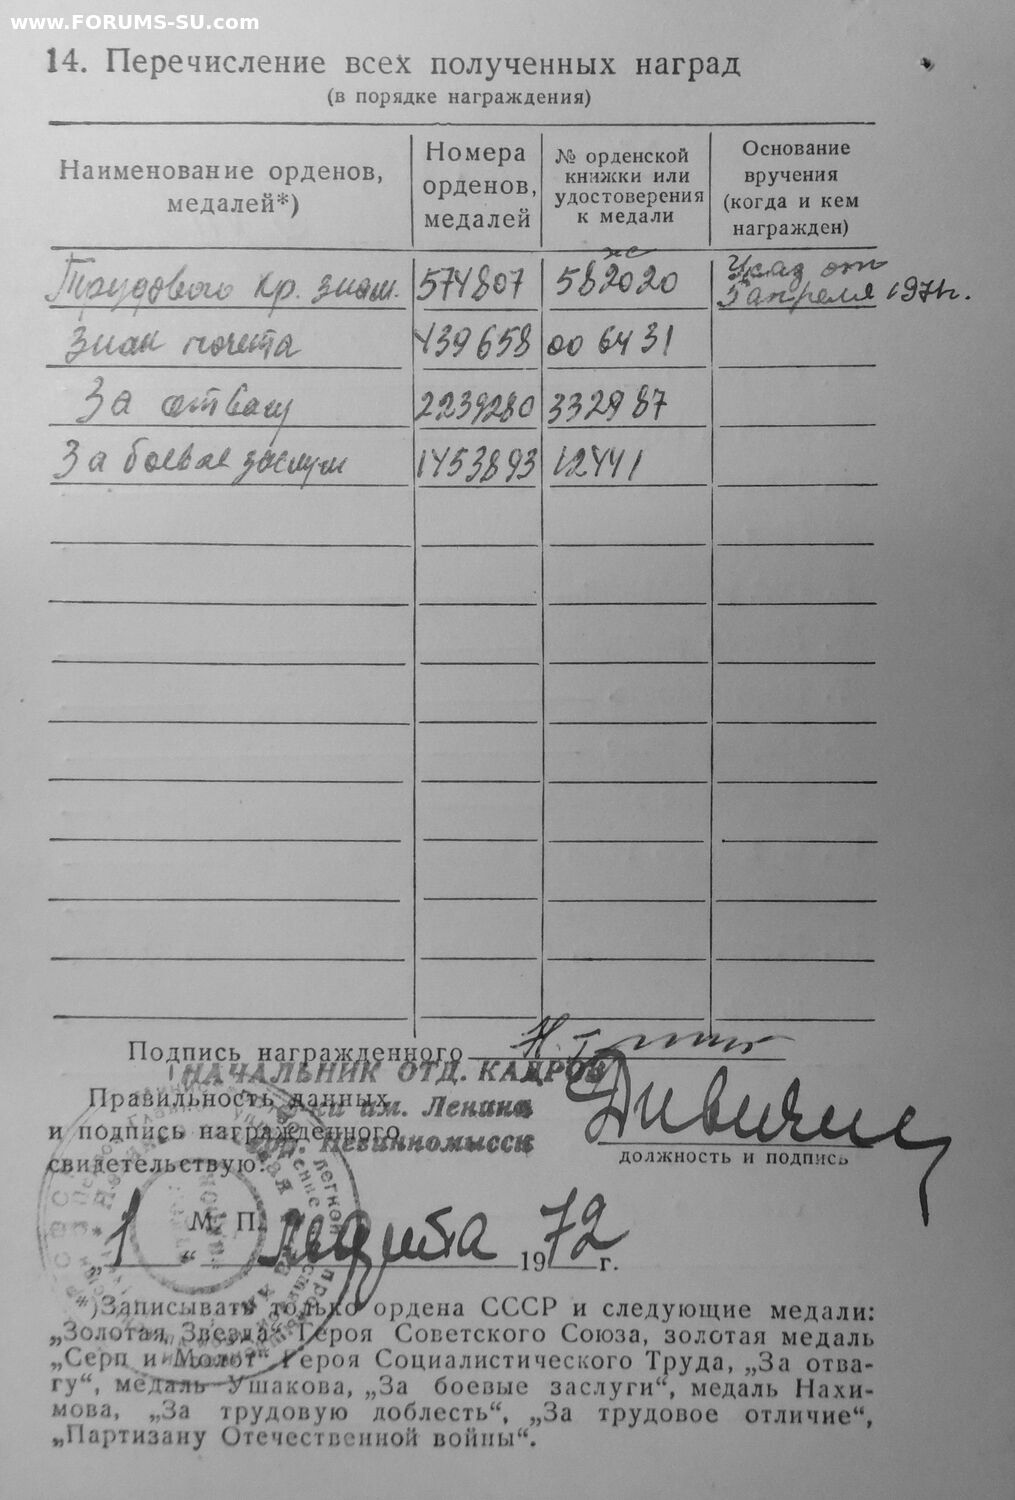 www.FORUMS-SU.com
14. Перечисление всех полученных наград
(в порядке награждения)
Наименование орденов, медалей*)
Номера орденов, медалей
№ орденской книжки или удостоверения к медали
Основание вручения (когда и кем награжден)
Трудового Кр. знам. 574807 582020 Указ от 5 апреля 1971г.
Знак почета 439658 006431
За отвагу 2239280 332987
За боевые заслуги 1453893 12441
Подпись награжденного
НАЧАЛЬНИК ОТД. КАДРОВ
Правильность данных
им. Ленина
и подпись награжденного
гор. Невинномысск
свидетельствую:
должность и подпись
М. П.
„1“ августа 1972 г.
*) Записывать только ордена СССР и следующие медали:
„Золотая Звезда“ Героя Советского Союза, золотая медаль
„Серп и Молот“ Героя Социалистического Труда, „За отва-
гу“, медаль Ушакова, „За боевые заслуги“, медаль Нахи-
мова, „За трудовую доблесть“, „За трудовое отличие“,
„Партизану Отечественной войны“.